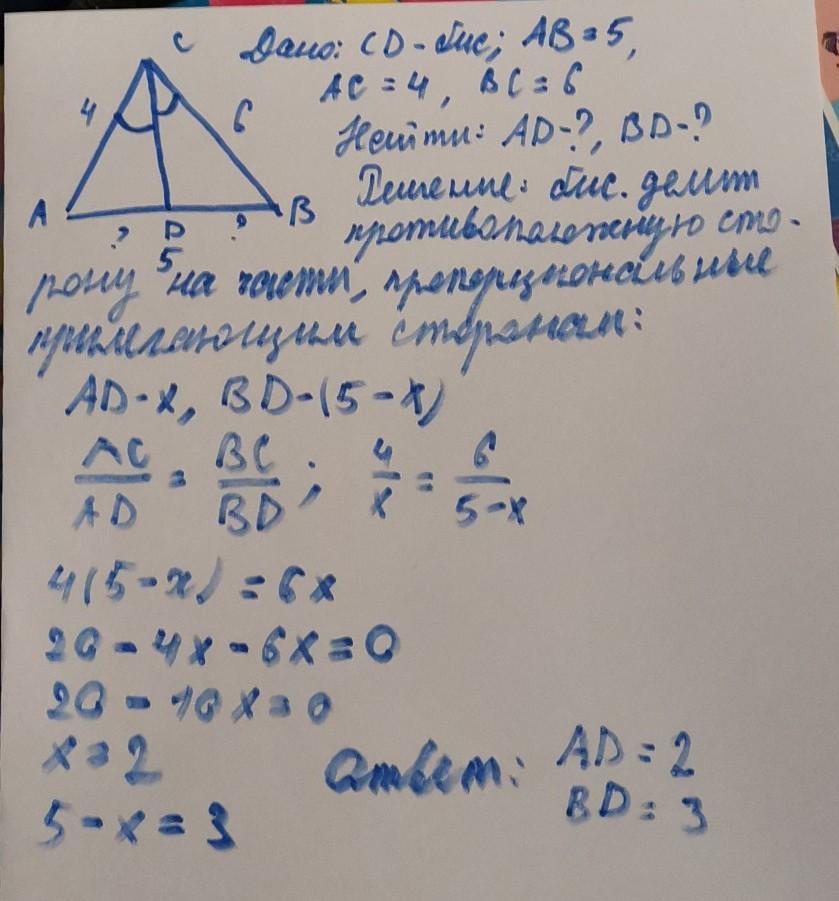 C
Дано: CD - бис; AB = 5,
AC = 4, BC = 6
4
6
Найти: AD - ?, BD - ?
A
D
B
?
?
5
Решение: бис. делит
противоположную сто-
рону на части, пропорциональные
прилегающим сторонам:
AD - x, BD - (5 - x)
AC/AD = BC/BD; 4/x = 6/5-x
4(5 - x) = 6x
20 - 4x - 6x = 0
20 - 10x = 0
x = 2
5 - x = 3
Ответ: AD = 2
BD = 3